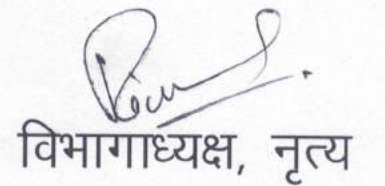 विभागाध्यक्ष, नृत्य